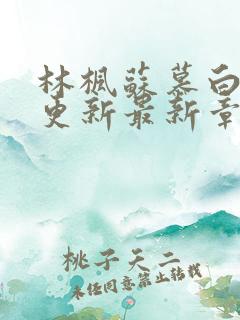 林楓蘇慕白
更新最新章
桃子天二
未经同意禁止转载